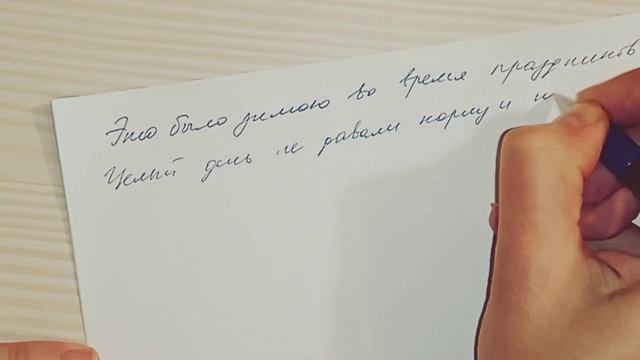 Это было зимою во время праздников
Целый день не давали корму и